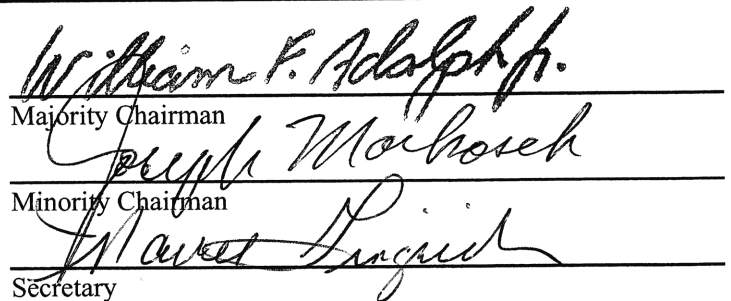 William F. Adolph Jr.
Majority Chairman
Joseph Markosek
Minority Chairman
Mauree Gingrich
Secretary